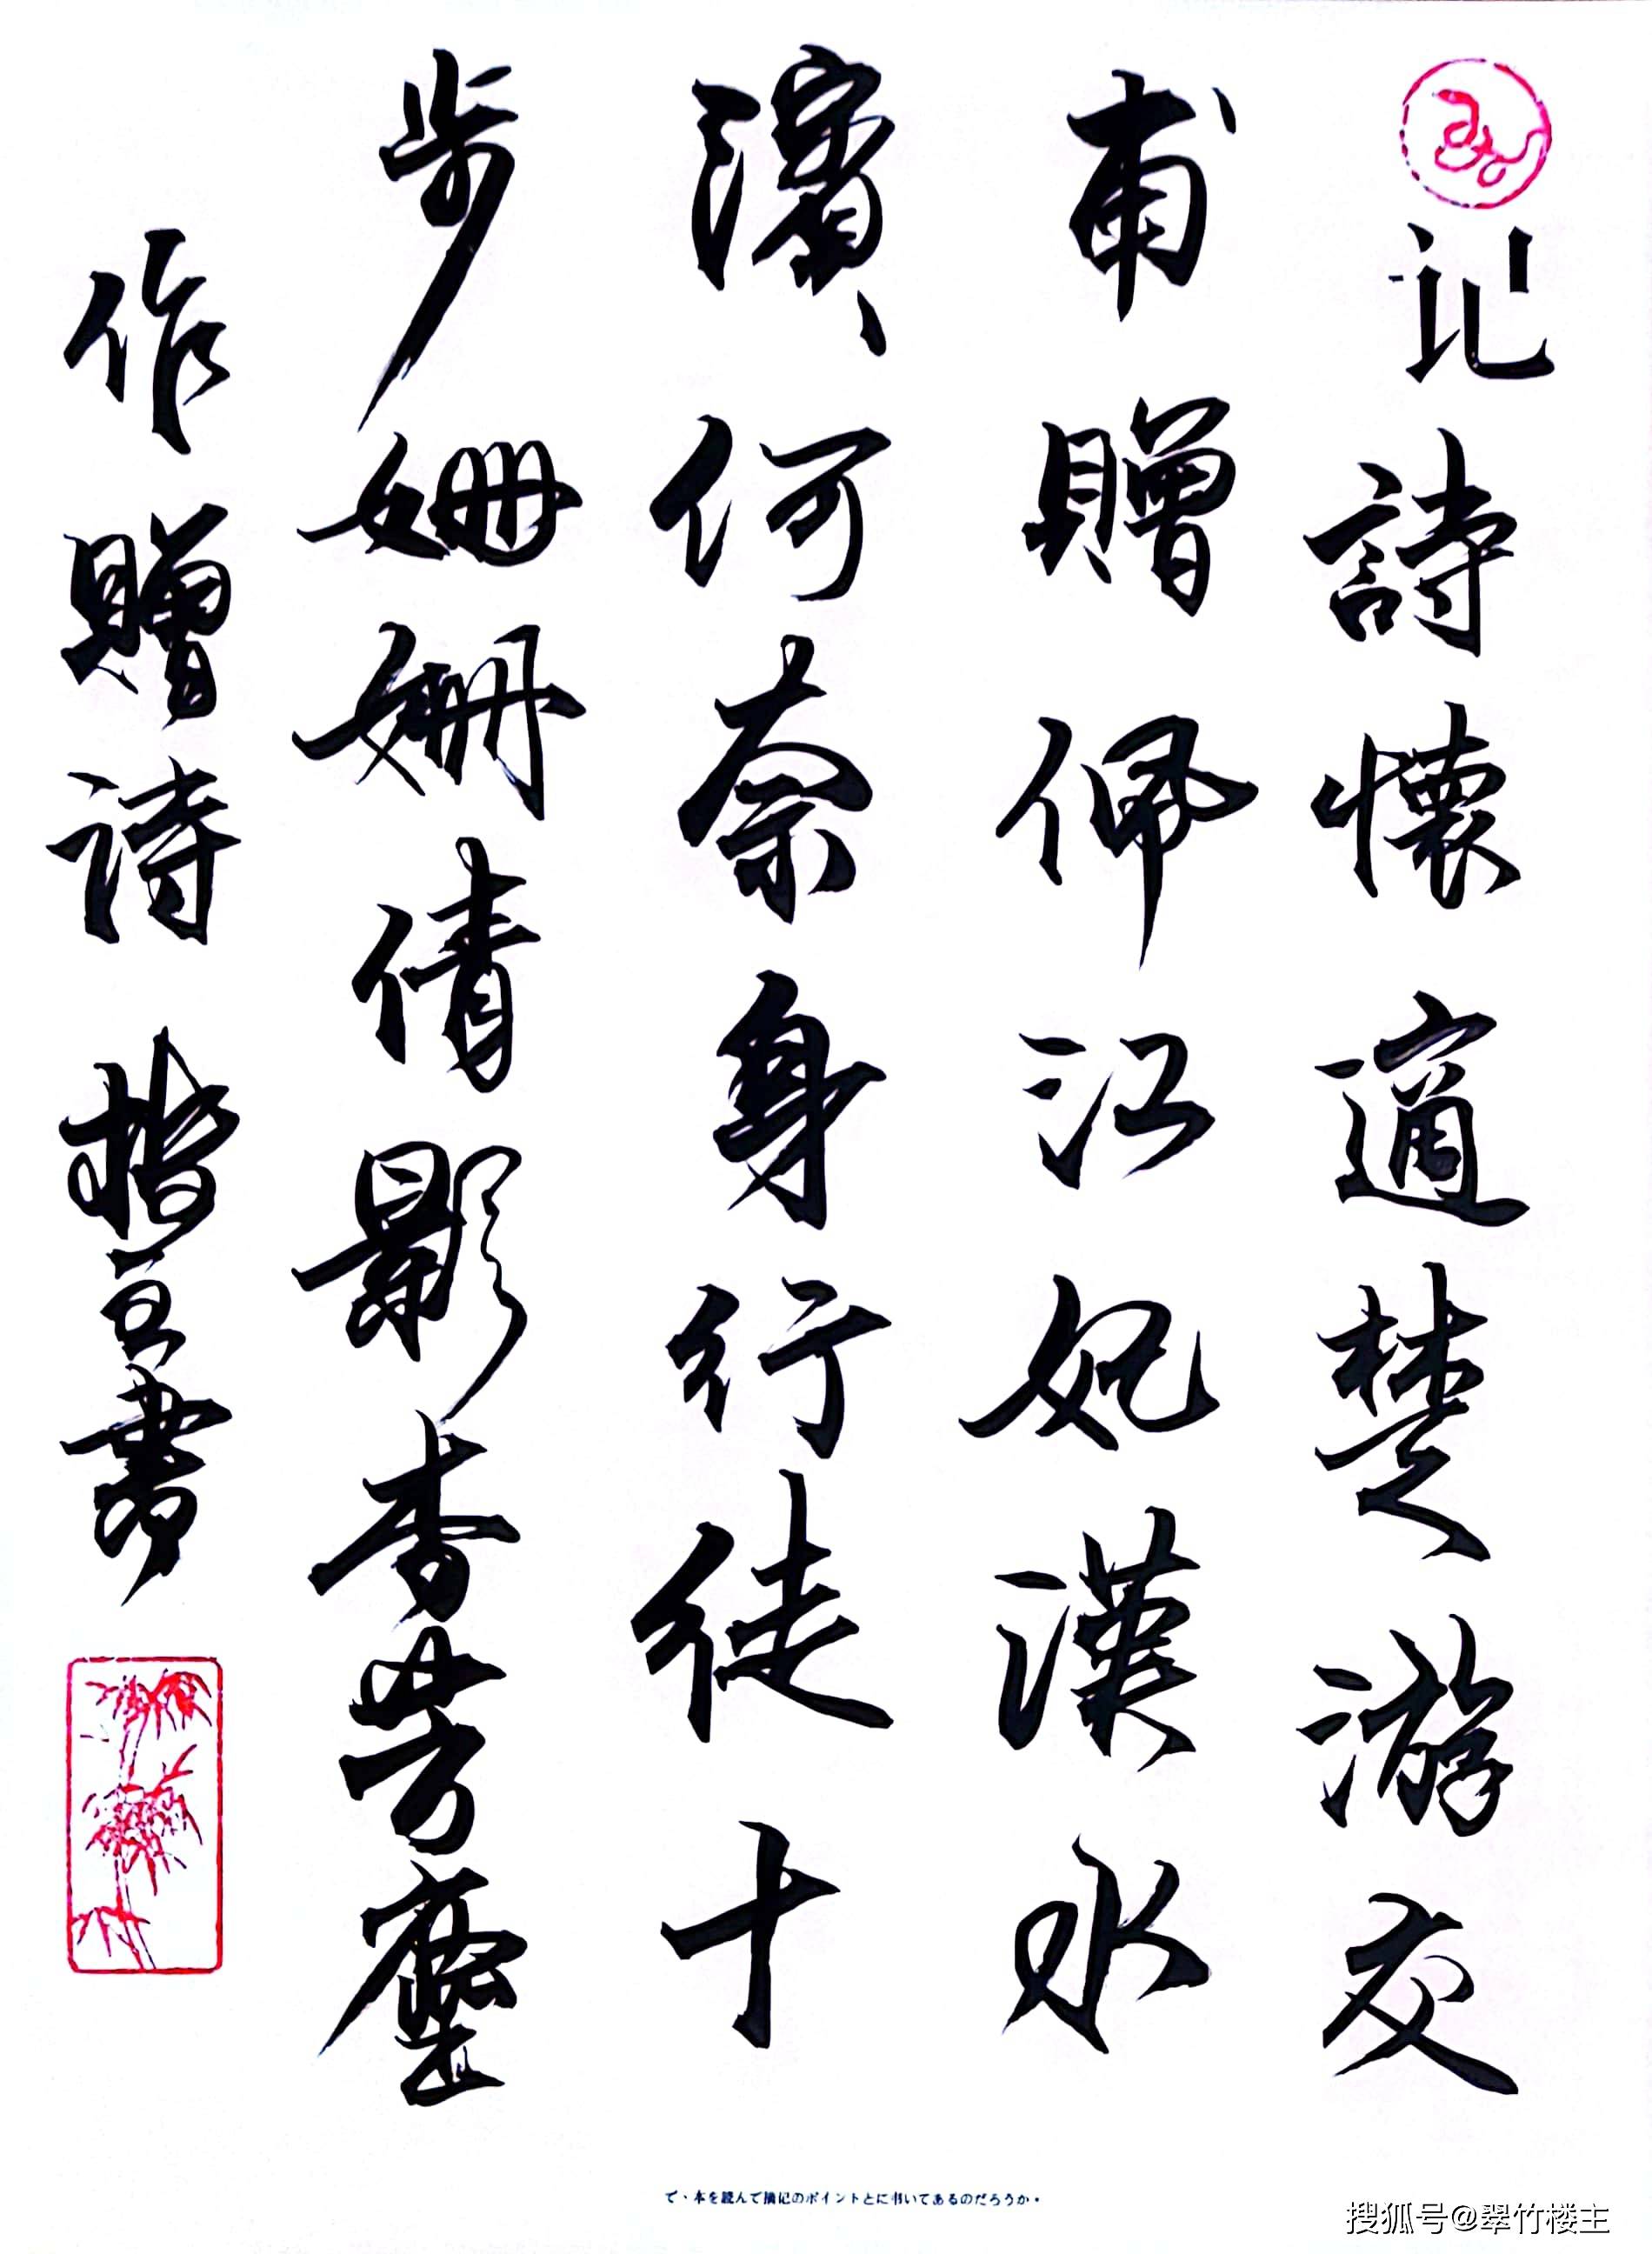 记詩懷適楚游交
甫贈佩江妃漢水
濱何奈身行徒十
步姍姍倩影杳芳塵
作贈詩 書
で、本を読んで摘记のポイントとに书いてあるのだろうか。
搜狐号@翠竹楼主